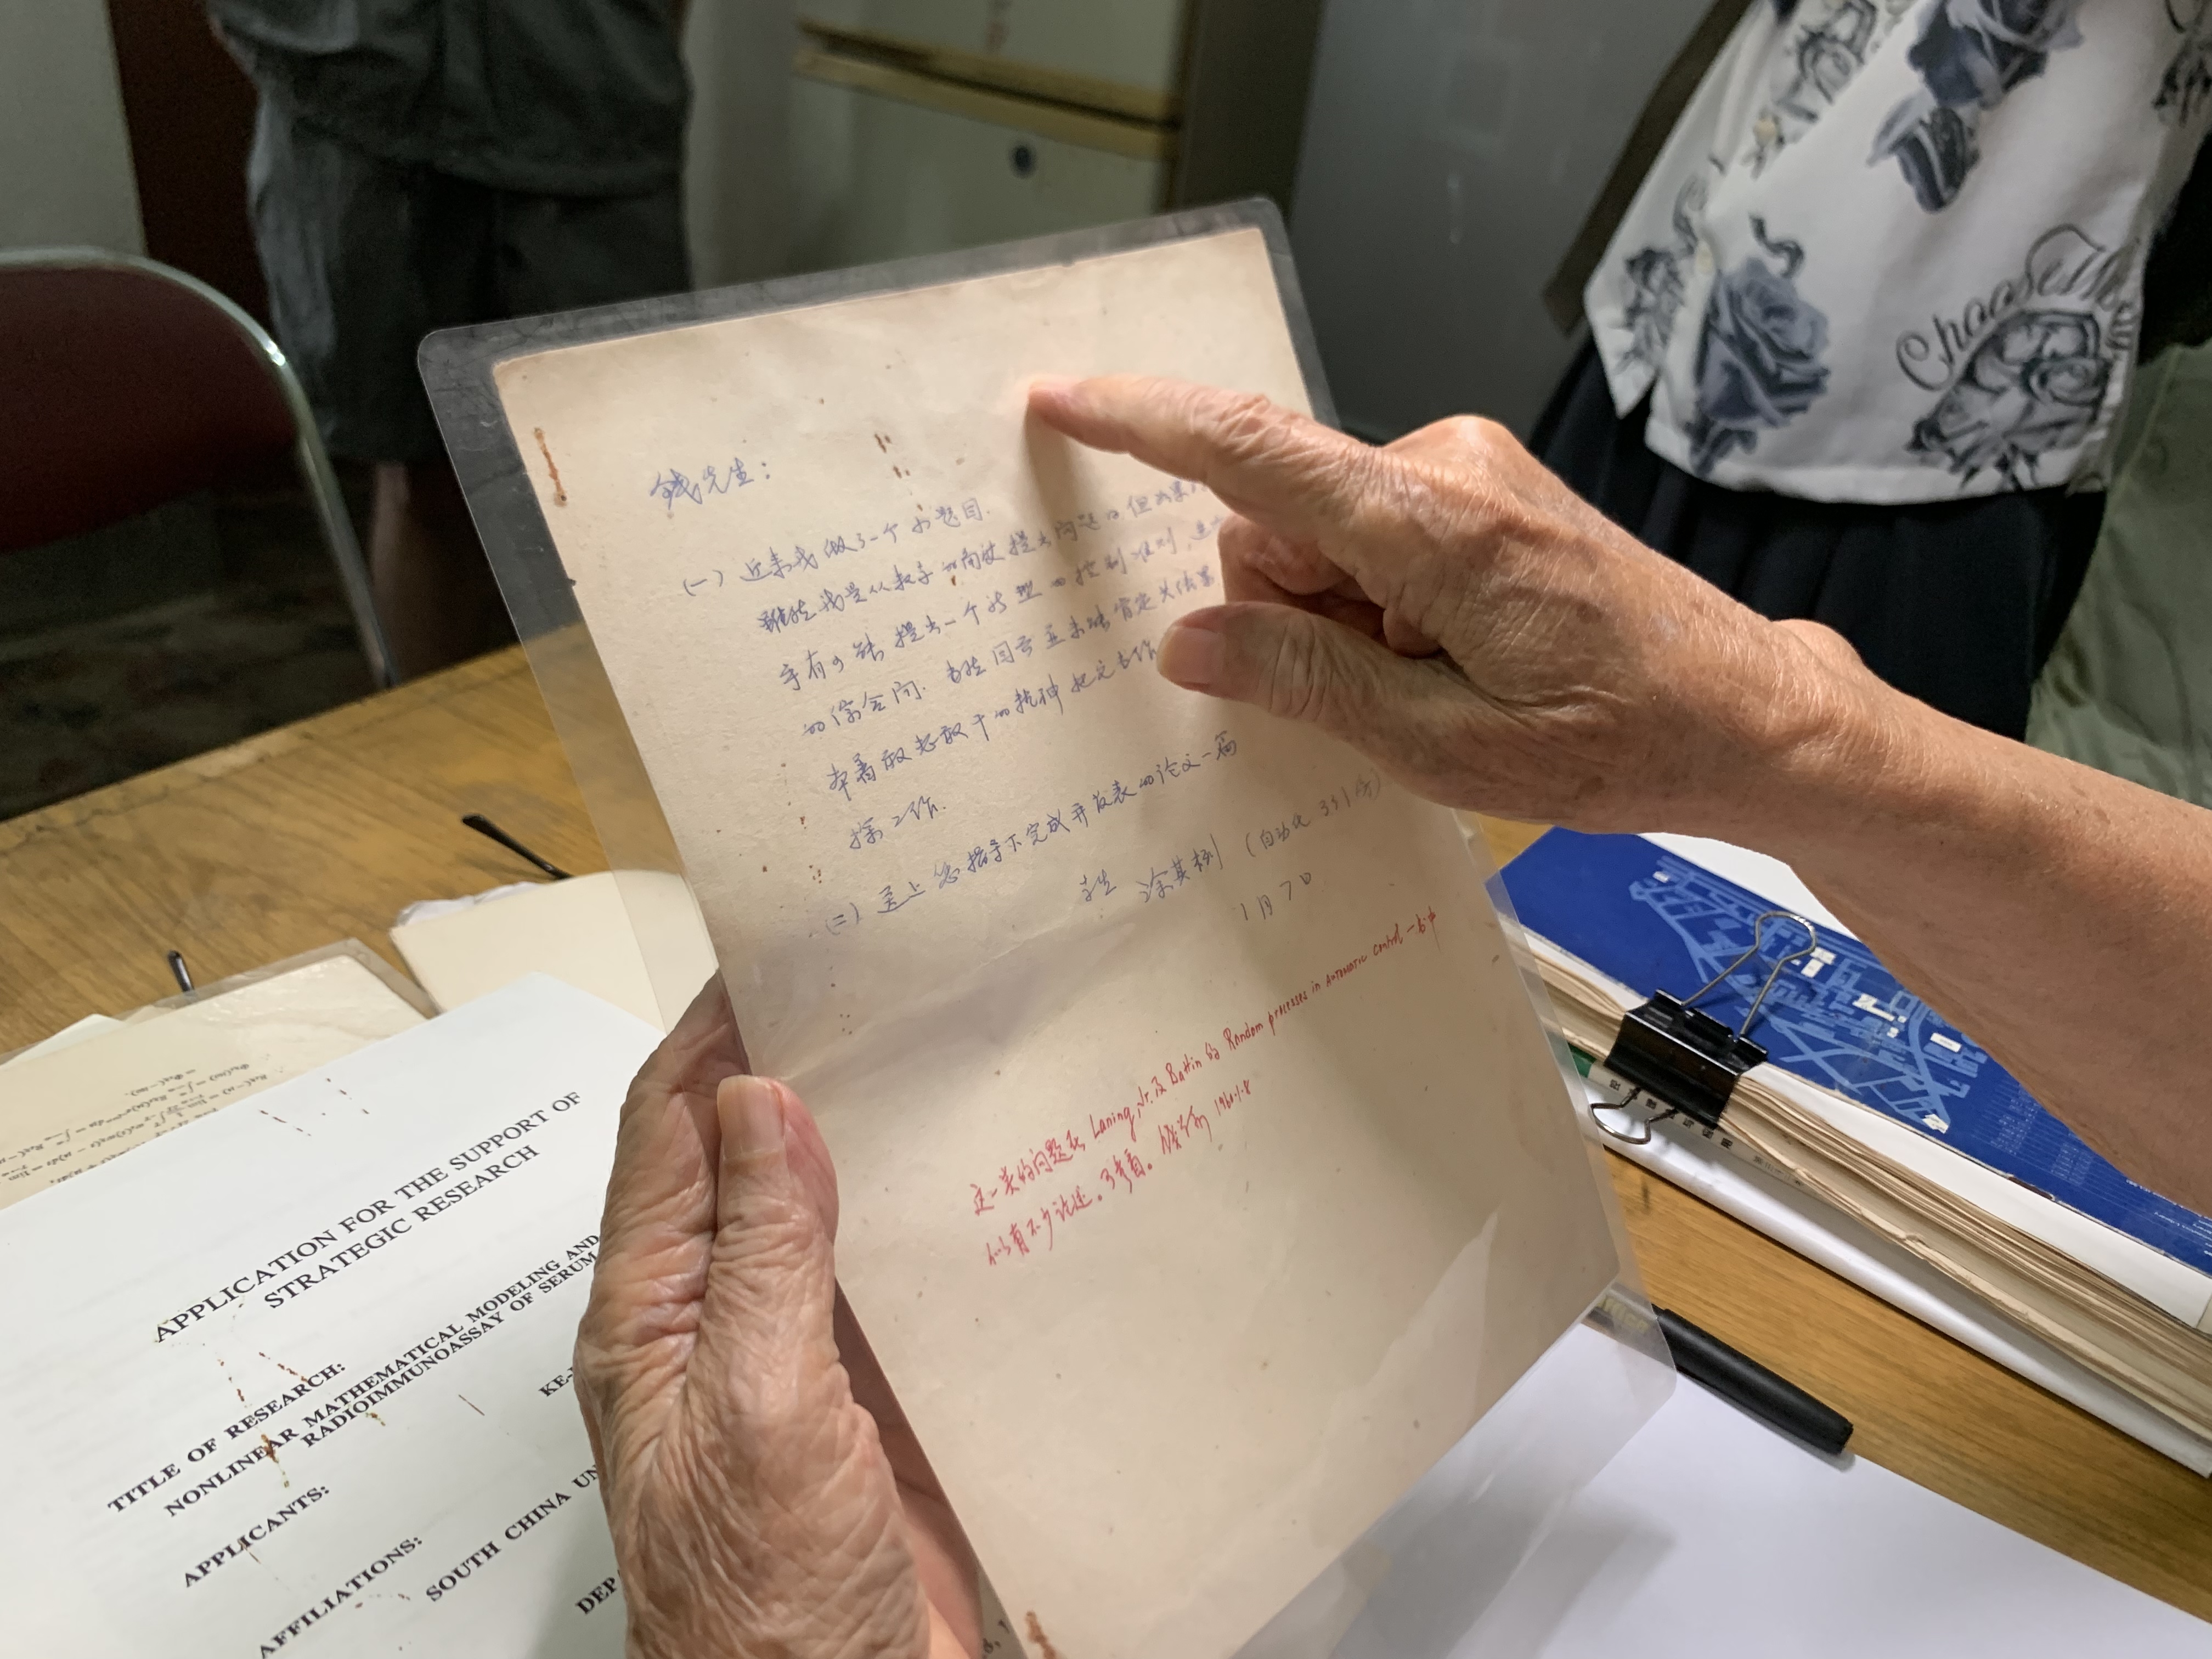 钱先生：
(一) 近来我做了一个小题目.
虽然我是从数学的角度提出问题的.但如果
学有可能提出一个新型的控制准则,
的综合问. 当然目前并未能肯定其结果
本着敢想敢干的精神把它当作
探工作.
(二) 送上您指导下完成并发表的论文一篇
学生 涂其栵 (自动化 331房)
1月7日
这一类的问题在 Laning, Jr. 及 Battin 的 Random processes in automatic control 一书中
似有不少论述。可参看。 钱学森 1960.1.8
APPLICATION FOR THE SUPPORT OF
STRATEGIC RESEARCH
TITLE OF RESEARCH:
NONLINEAR MATHEMATICAL MODELING AND
RADIOIMMUNOASSAY OF SERUM
APPLICANTS:
KE-
AFFILIATIONS:
SOUTH CHINA UN
DEP
Choose